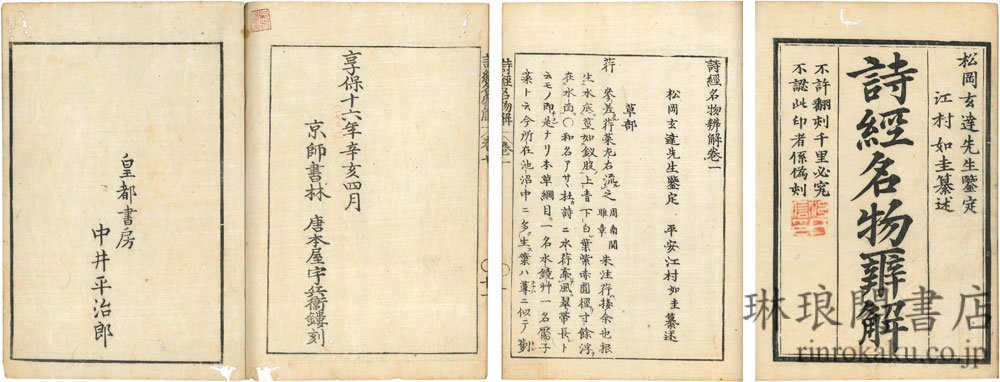 松岡玄達先生鑒定
江村如圭纂述
詩經名物辨解
不許翻刻千里必究
不認此印者係偽刻
詩經名物辨解卷一
松岡玄達先生鑒定 平安江村如圭纂述
草部
荇 參差荇菜左右流之 周南關雎章 朱注荇接余也根
生水底莖如釵股上青下白葉紫赤圓徑寸餘浮
在水面〇和名アサヽ杜詩ニ水荇牽風翠帶長ト
云モノ即是ナリ本草綱目一名水鏡艸一名靨子
菜ト云今所在池沼中ニ多生ス葉ハ蓴ニ似テ
享保十六年辛亥四月
京師書林 唐本屋宇兵衞鏤刻
皇都書房
中井平治郎
琳琅閣書店
rinrokaku.co.jp